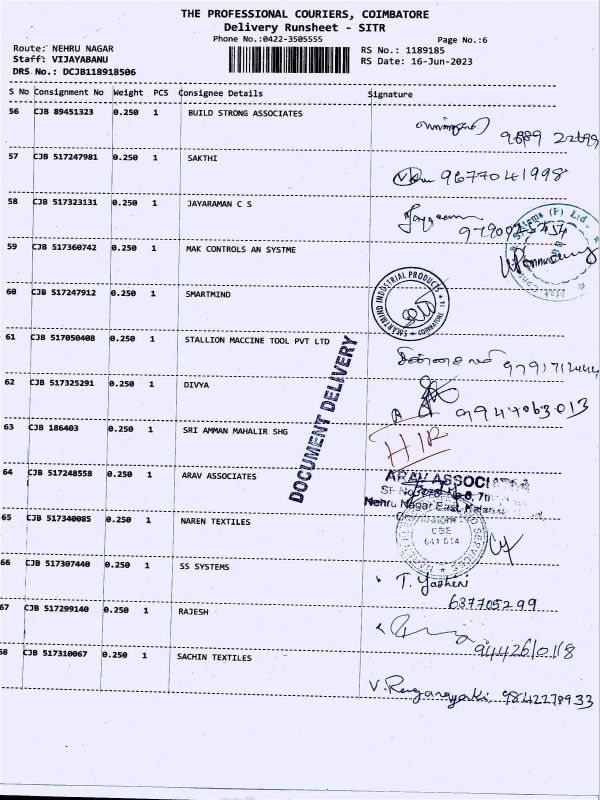 THE PROFESSIONAL COURIERS, COIMBATORE
Delivery Runsheet - SITR
Phone No.:0422-3505555
Page No.:6
Route: NEHRU NAGAR
RS No.: 1189185
Staff: VIJAYABANU
RS Date: 16-Jun-2023
DRS No.: DCJB118918506
S No Consignment No Weight PCS Consignee Details Signature
56 CJB 89451323 0.250 1 BUILD STRONG ASSOCIATES
57 CJB 517247981 0.250 1 SAKTHI 9677041998
58 CJB 517323131 0.250 1 JAYARAMAN C S
59 CJB 517360742 0.250 1 MAK CONTROLS AN SYSTME
60 CJB 517247912 0.250 1 SMARTMIND
SMARTMIND INDUSTRIAL PRODUCTS
COIMBATORE
61 CJB 517050408 0.250 1 STALLION MACCINE TOOL PVT LTD
DOCUMENT DELIVERY
62 CJB 517325291 0.250 1 DIVYA 9947063013
63 CJB 186403 0.250 1 SRI AMMAN MAHALIR SHG
64 CJB 517248558 0.250 1 ARAV ASSOCIATES
ARAV ASSOCI
Nehru Nagar East,
65 CJB 517340085 0.250 1 NAREN TEXTILES
CBE
641 014
66 CJB 517307440 0.250 1 SS SYSTEMS
T. Yazhini
637705299
67 CJB 517299140 0.250 1 RAJESH
9442610118
68 CJB 517310067 0.250 1 SACHIN TEXTILES
V. Renganayaki 9842278933